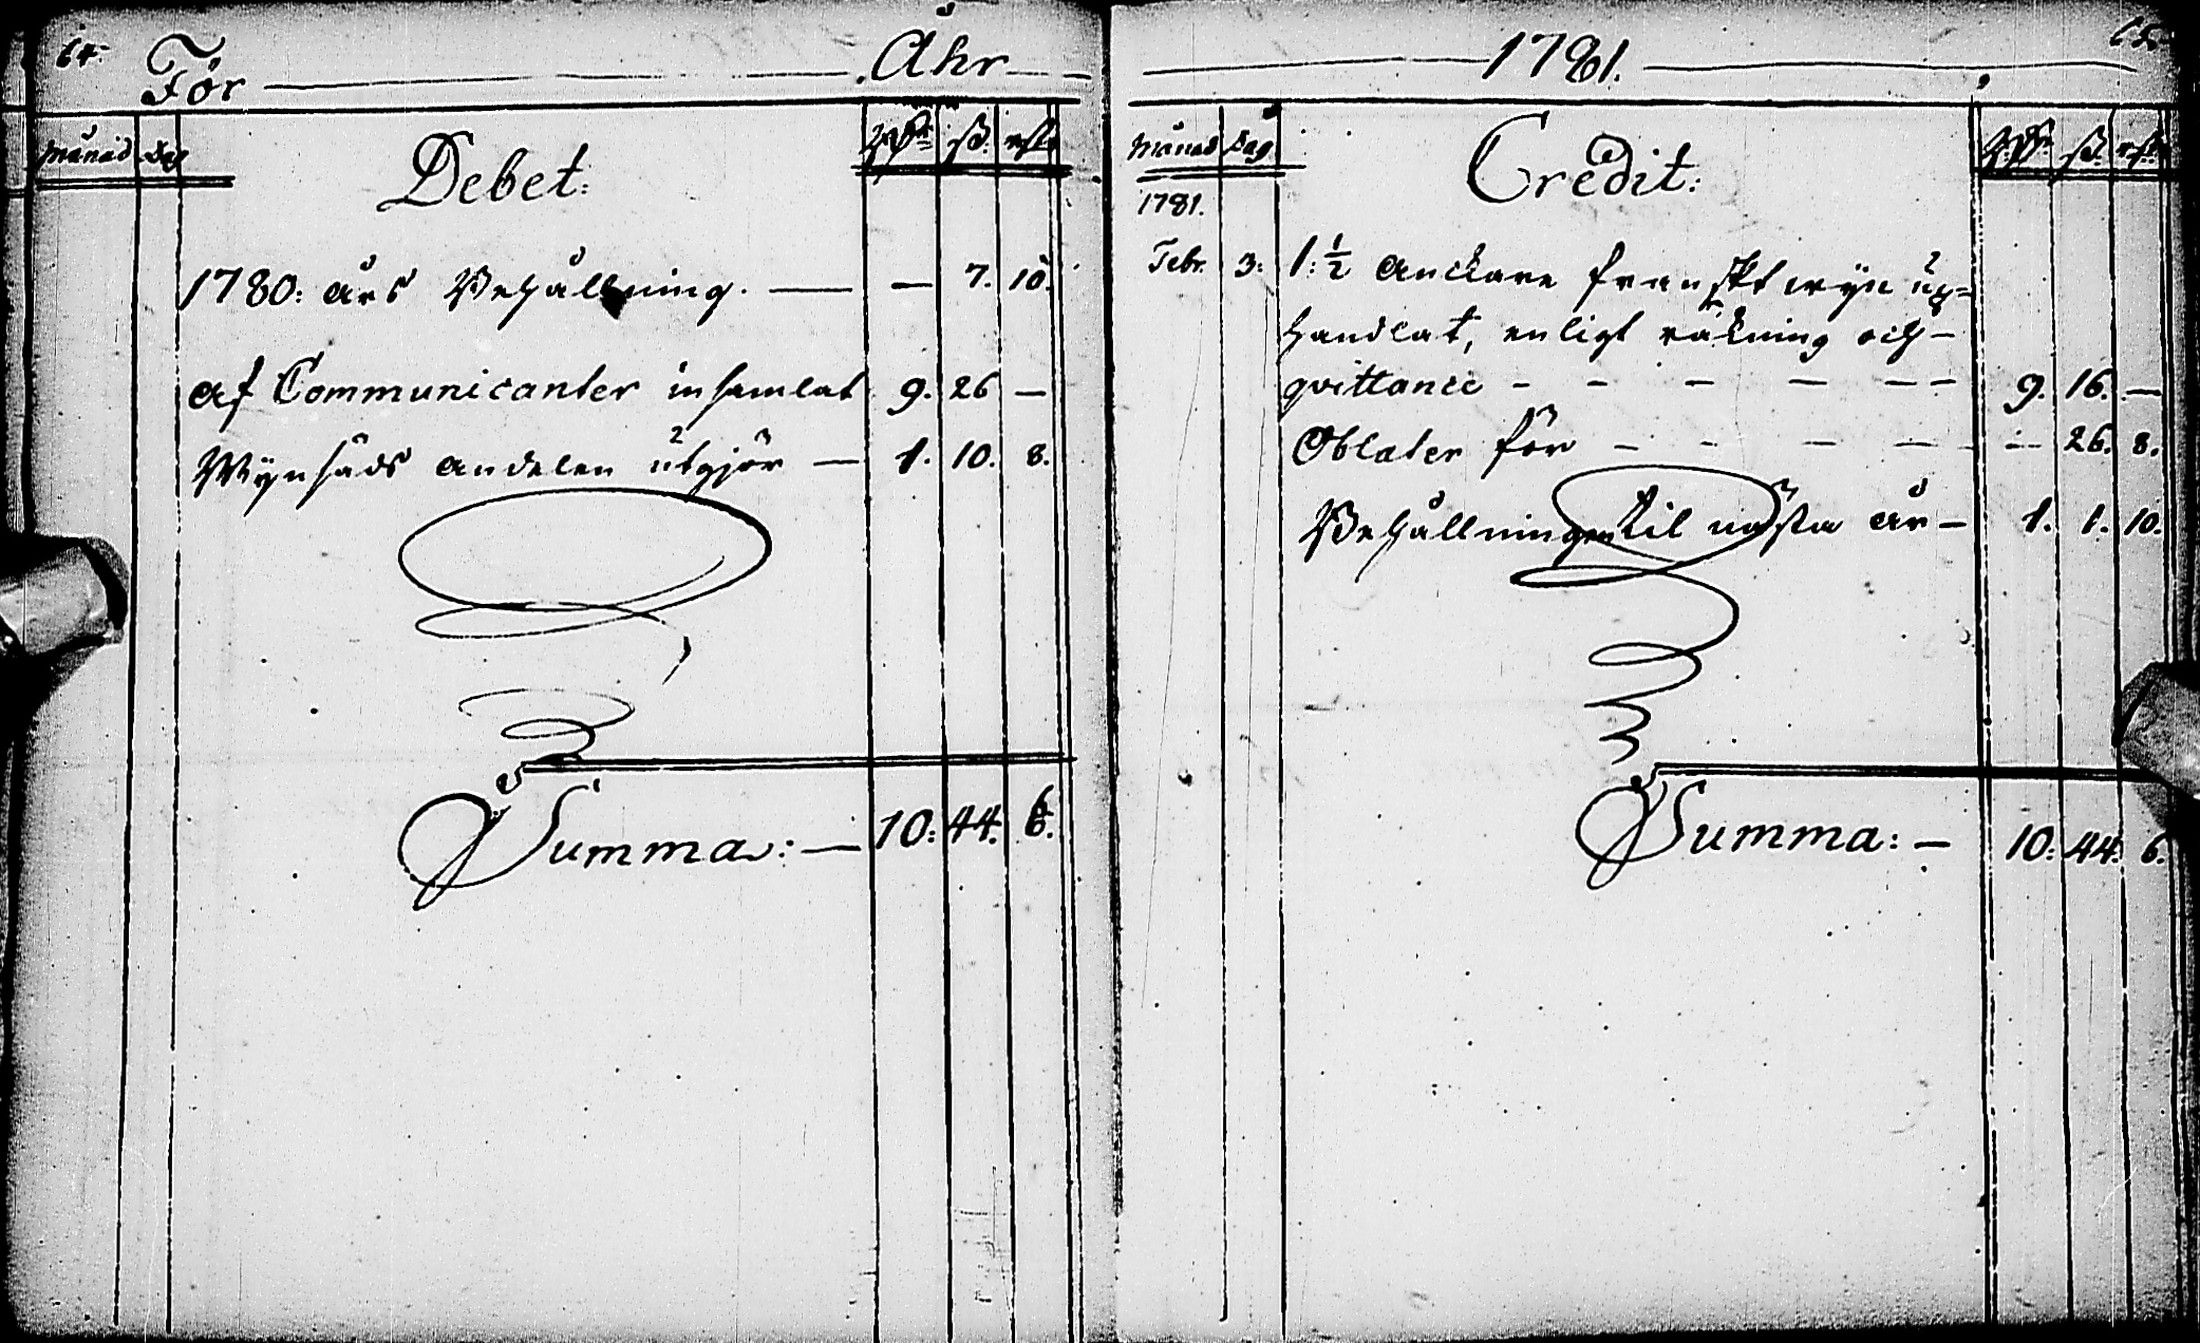 64.
För Åhr
Månad Dag
Debet: Rdr ß. rst.
1780: års Behållning. — — 7. 10.
af Communicanter insamlat 9. 26 —
Wynsäds andelen utgjör — 1. 10. 8.
Summa: — 10: 44. 6.
1781. 65.
Månad Dag
Credit: Rdr ß. rst.
1781.
Febr. 3: 1:½ Anckare franskt wyn up=
handlat, enligt räkning och —
qvittance - - - - - - 9. 16. —
Oblater för - - - - — 26. 8.
Behållningen til nästa år — 1. 1. 10.
Summa: — 10: 44: 6.